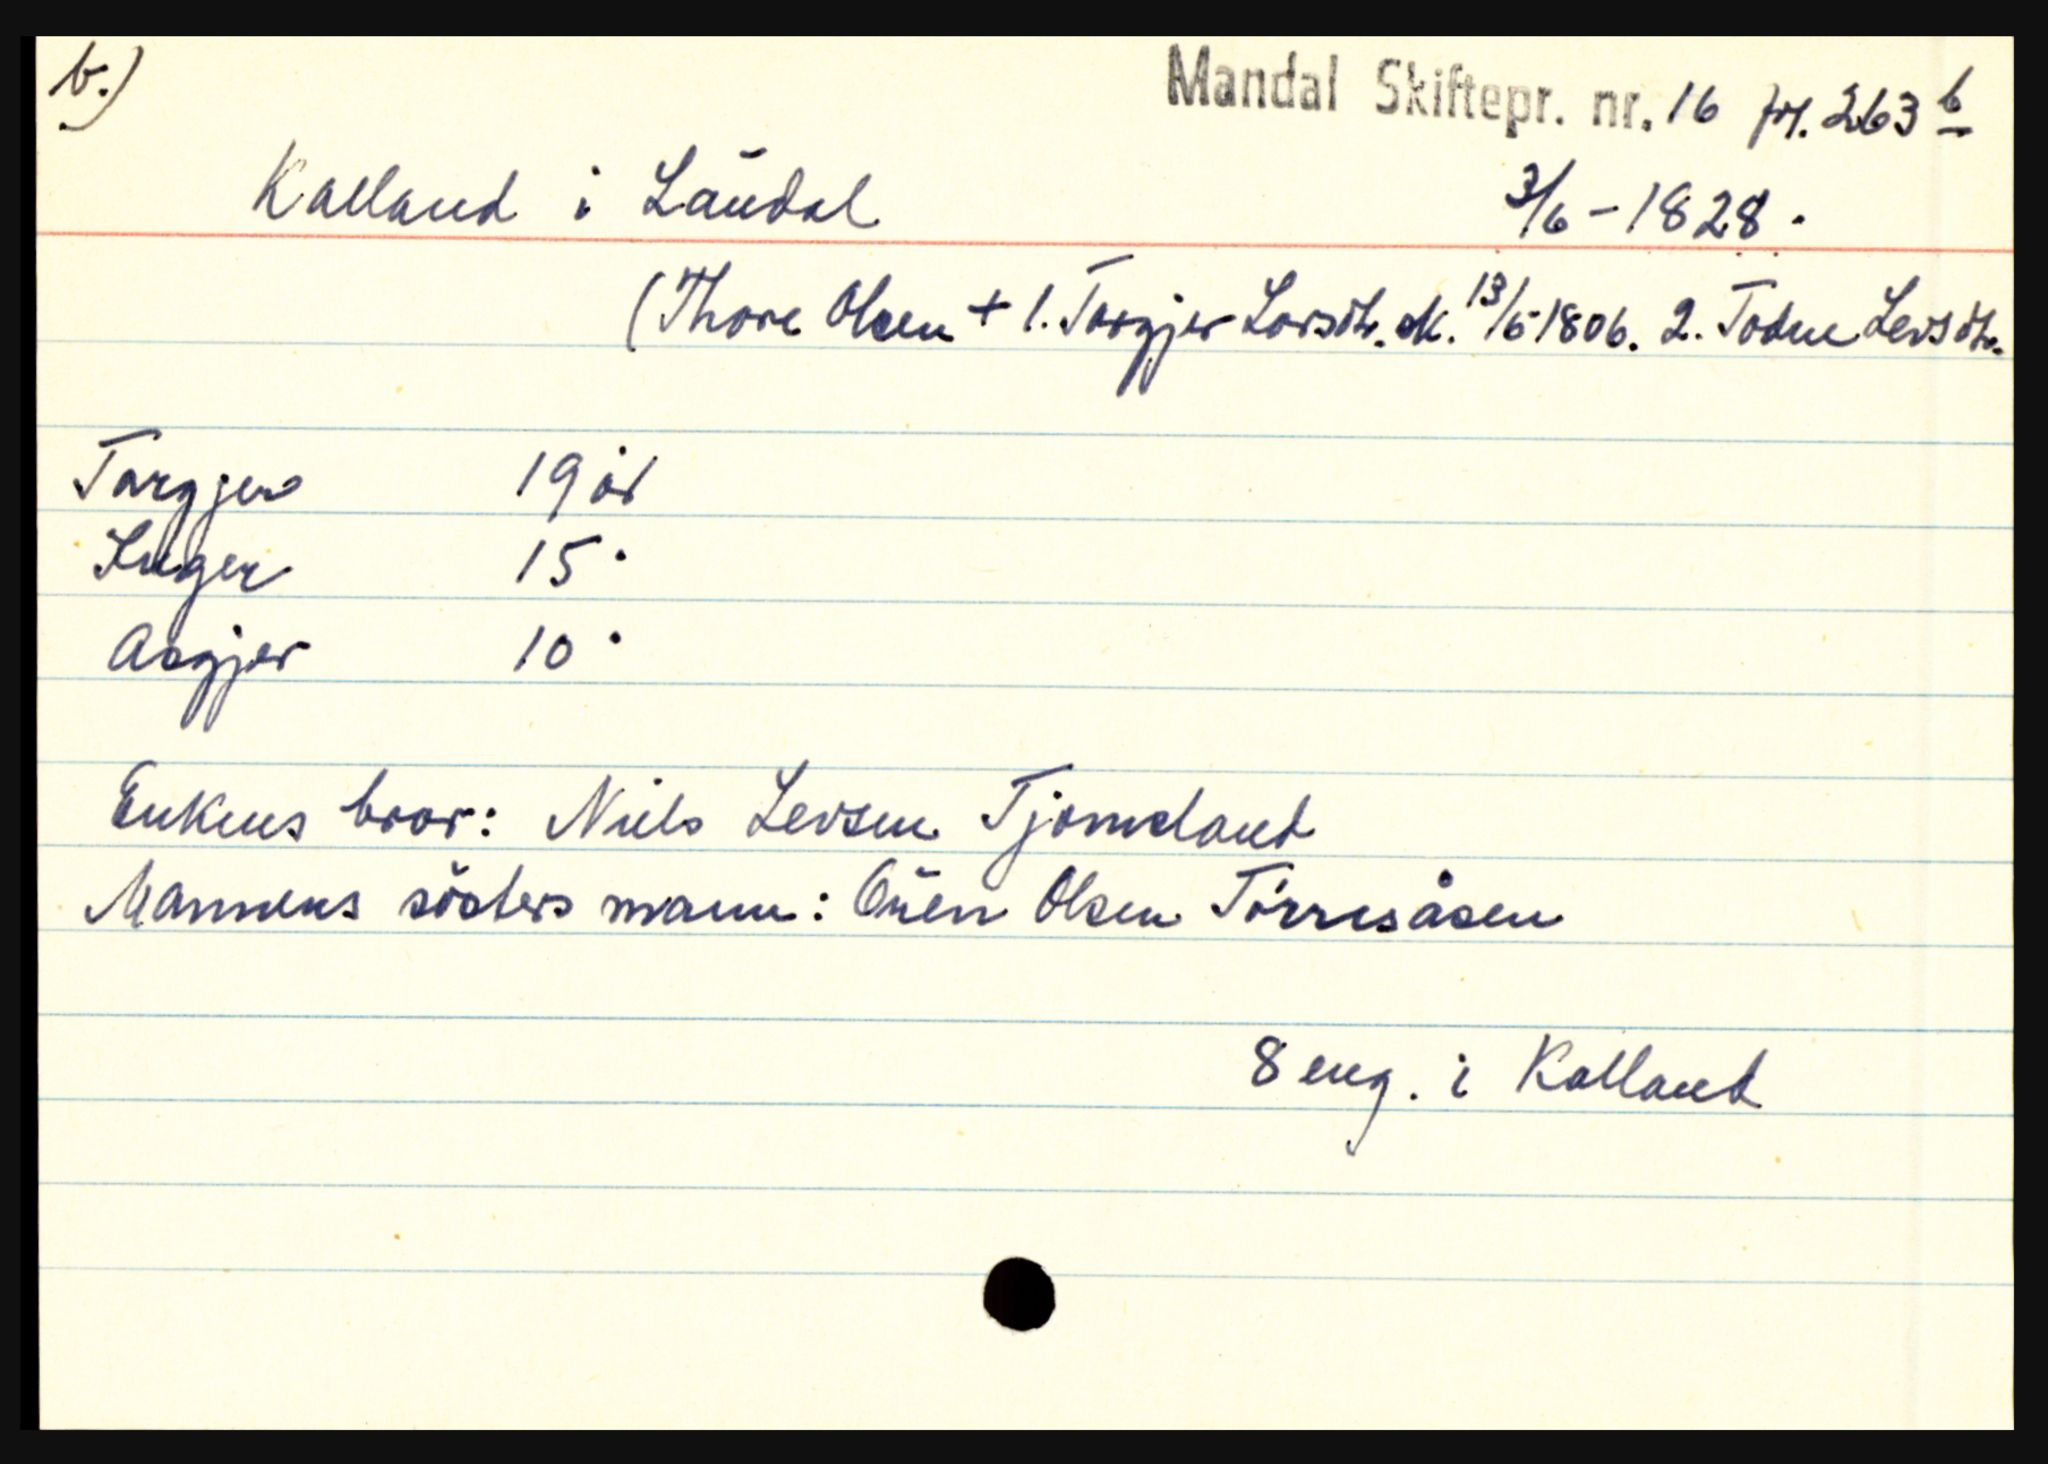 b.)
Mandal Skiftepr. nr. 16 fol. 263 b
Kalland i Laudal 3/6 - 1828.
(Thore Olsen + 1. Torgjer Larsdtr. sk. 13/5 1806. 2. Todne Levsdtr.
Torgjer 19 år
Inger 15 "
Asgjer 10 "
Enkens bror: Niels Levsen Tjomsland
Mannens søsters mann: Ouen Olsen Tørresåsen
8 eng. i Kalland